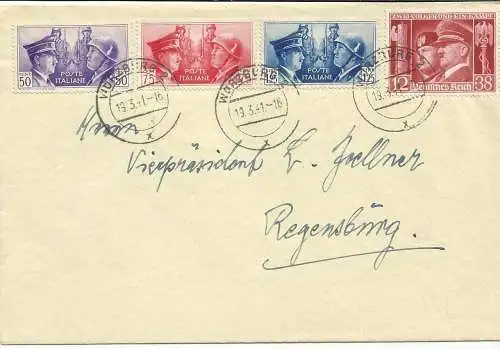 50 POSTE ITALIANE 50
75 POSTE ITALIANE
POSTE ITALIANE 1,25
ZWEI VÖLKER UND EIN KAMPF
12 Deutsches Reich 38
WÜRZBURG 2
19.3.41.-16
x
WÜRZBURG 2
19.3.41.-16
x
WÜRZBURG 2
19.3
x
Herrn
Vizepräsident L. Zellner
Regensburg.